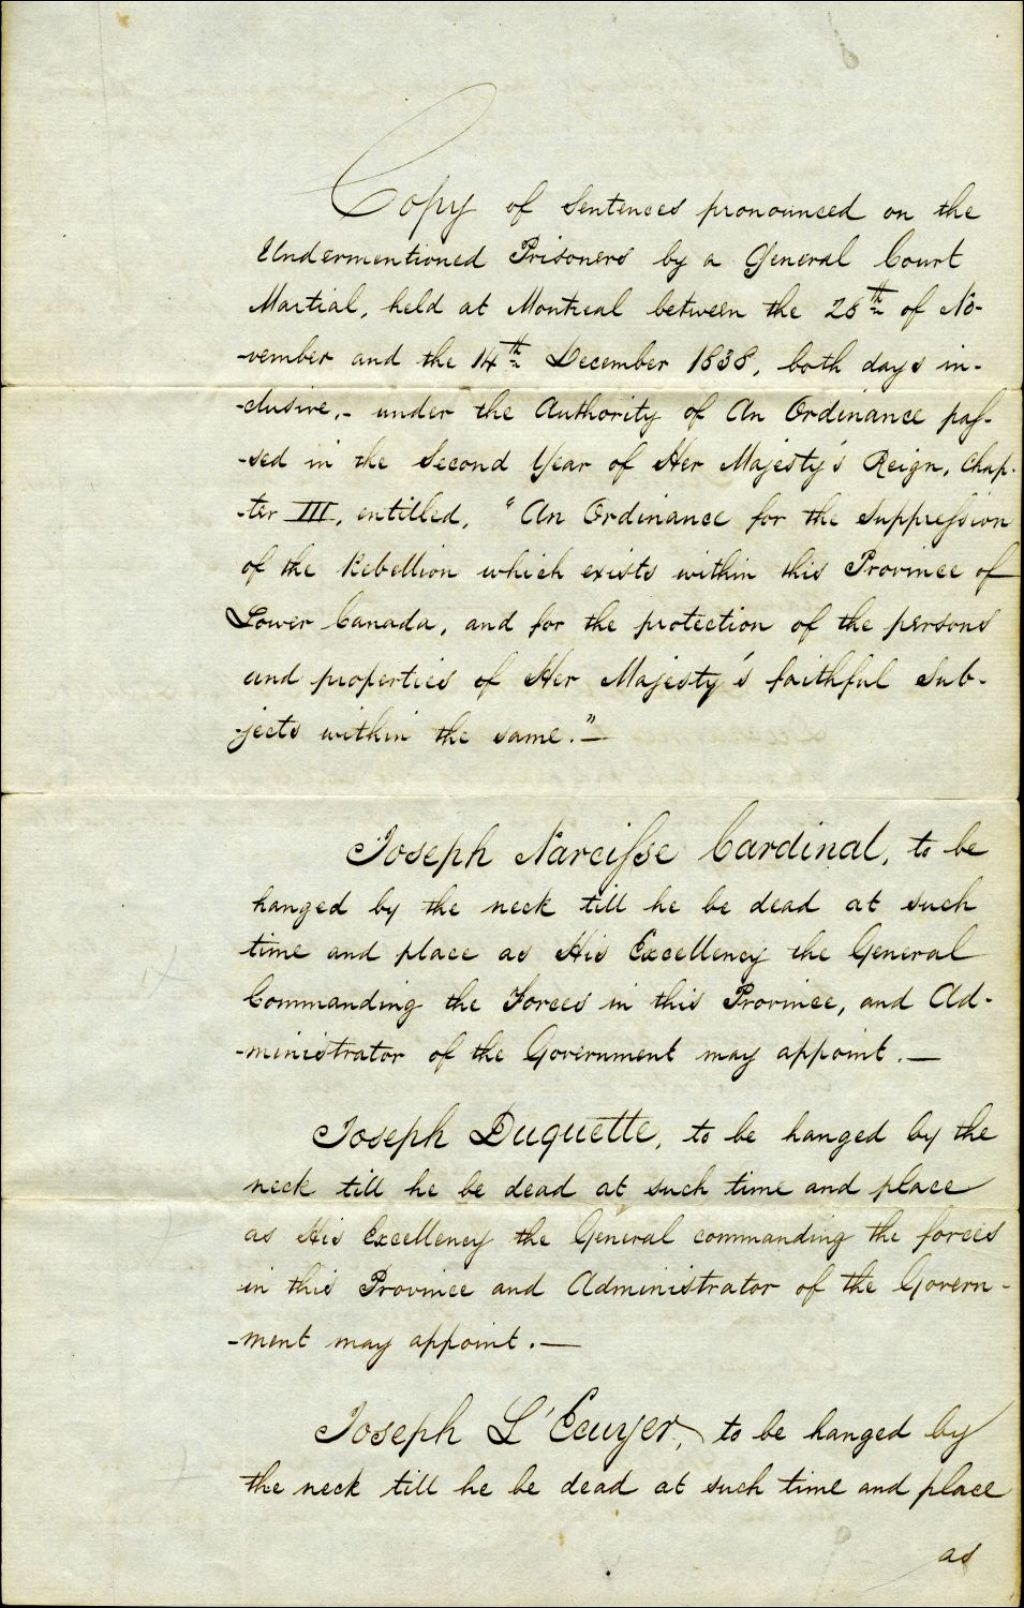 Copy of Sentences pronounced on the
Undermentioned Prisoners by a General Court
Martial, held at Montreal between the 28th of No-
-vember and the 14th December 1838, both days in-
-clusive,- under the Authority of An Ordinance pas-
-sed in the Second Year of Her Majesty's Reign, Chap-
-ter III, entitled, "An Ordinance for the Suppression
of the Rebellion which exists within this Province of
Lower Canada, and for the protection of the persons
and properties of Her Majesty's faithful Sub-
-jects within the same."—
Joseph Narcisse Cardinal, to be
hanged by the neck till he be dead at such
time and place as His Excellency the General
Commanding the Forces in this Province, and Ad-
-ministrator of the Government may appoint.—
Joseph Duquette, to be hanged by the
neck till he be dead at such time and place
as His Excellency the General commanding the forces
in this Province and Administrator of the Govern-
-ment may appoint.—
Joseph L'Ecuyer, to be hanged by
the neck till he be dead at such time and place
as